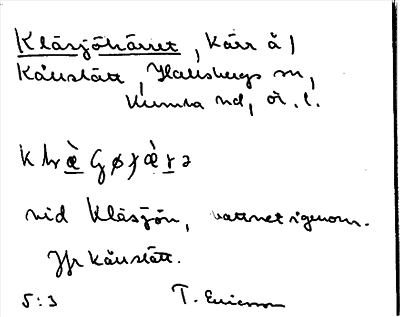 Kläsjökärret, kärr å /
Kånstätt, Hallsbergs sn,
Kumla hd, ör. l.
vid Kläsjön, vattnet igenom.
Jfr Kånstätt.
5:3 T. Ericsson